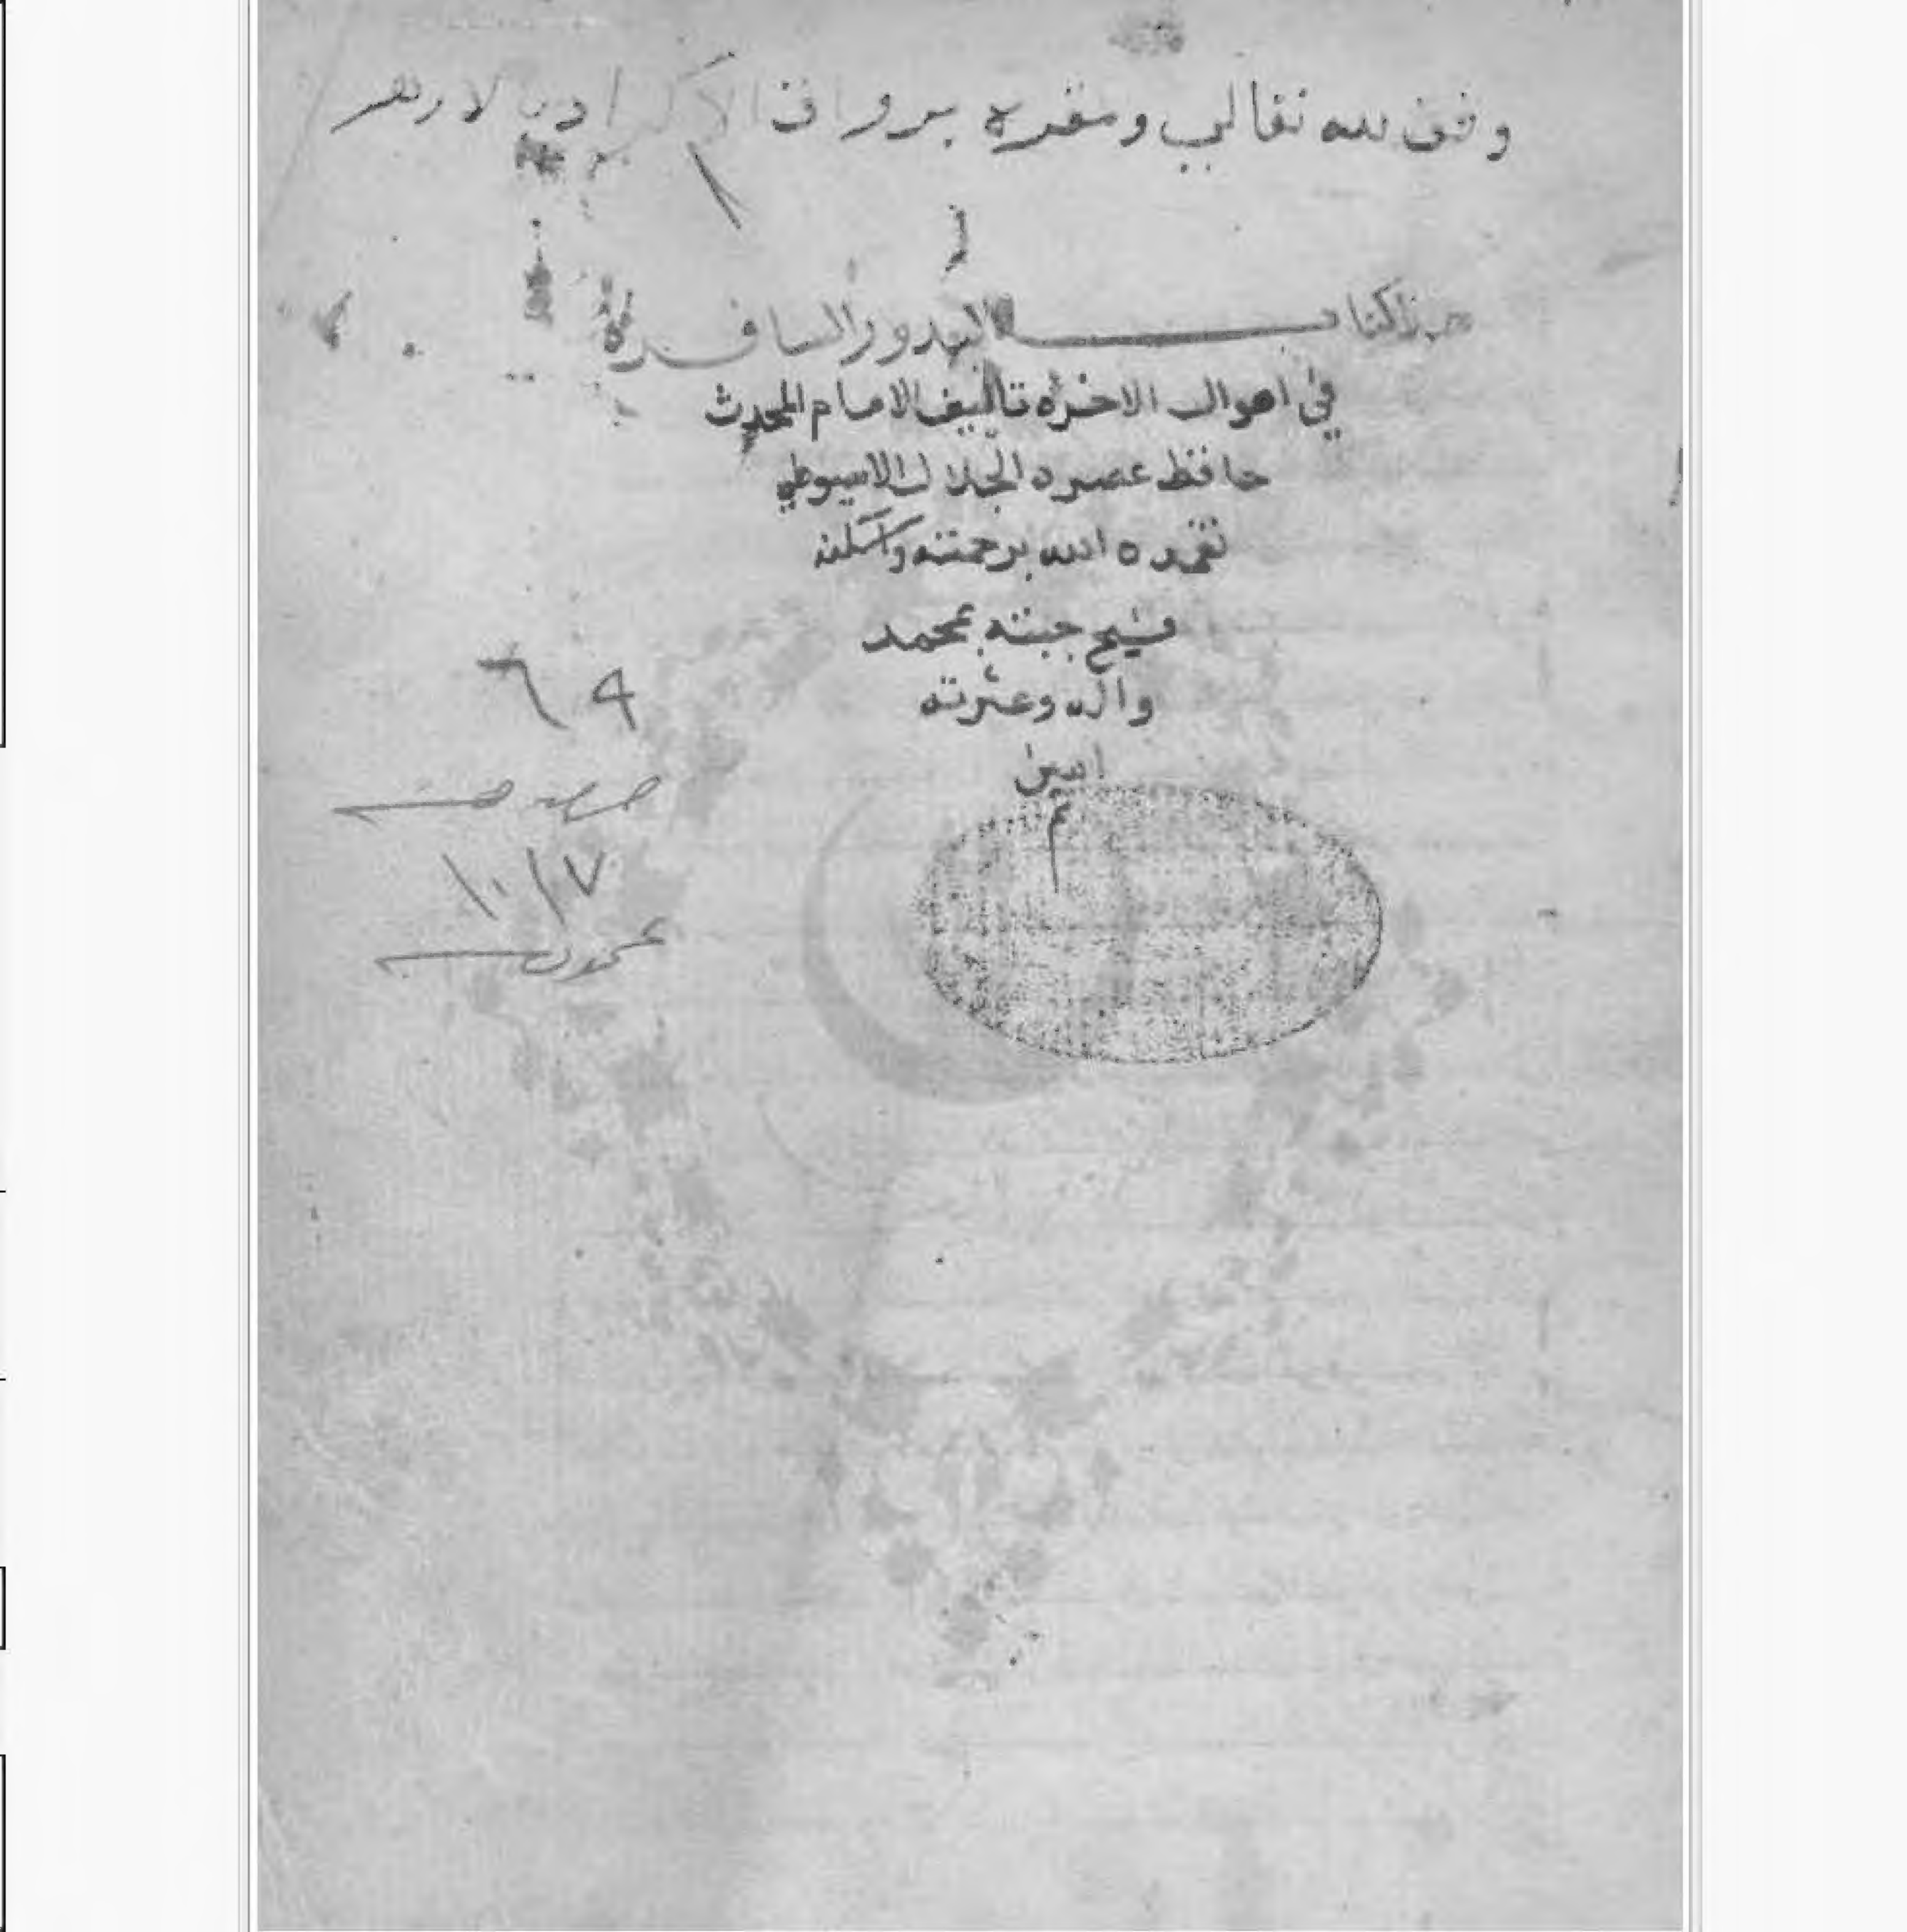 وقف لله تعالى ومقره برواق الاكراد بالازهر
هذا كتاب البدور السافرة
في احوال الاخرة تاليف الامام المحدث
حافظ عصره الجلال الاسيوطي
تغمده الله برحمته واسكنه
فسيح جنته بمحمد
واله وعترته
امين
م
٦٩
خصوصية
١٠١٧
عمومية